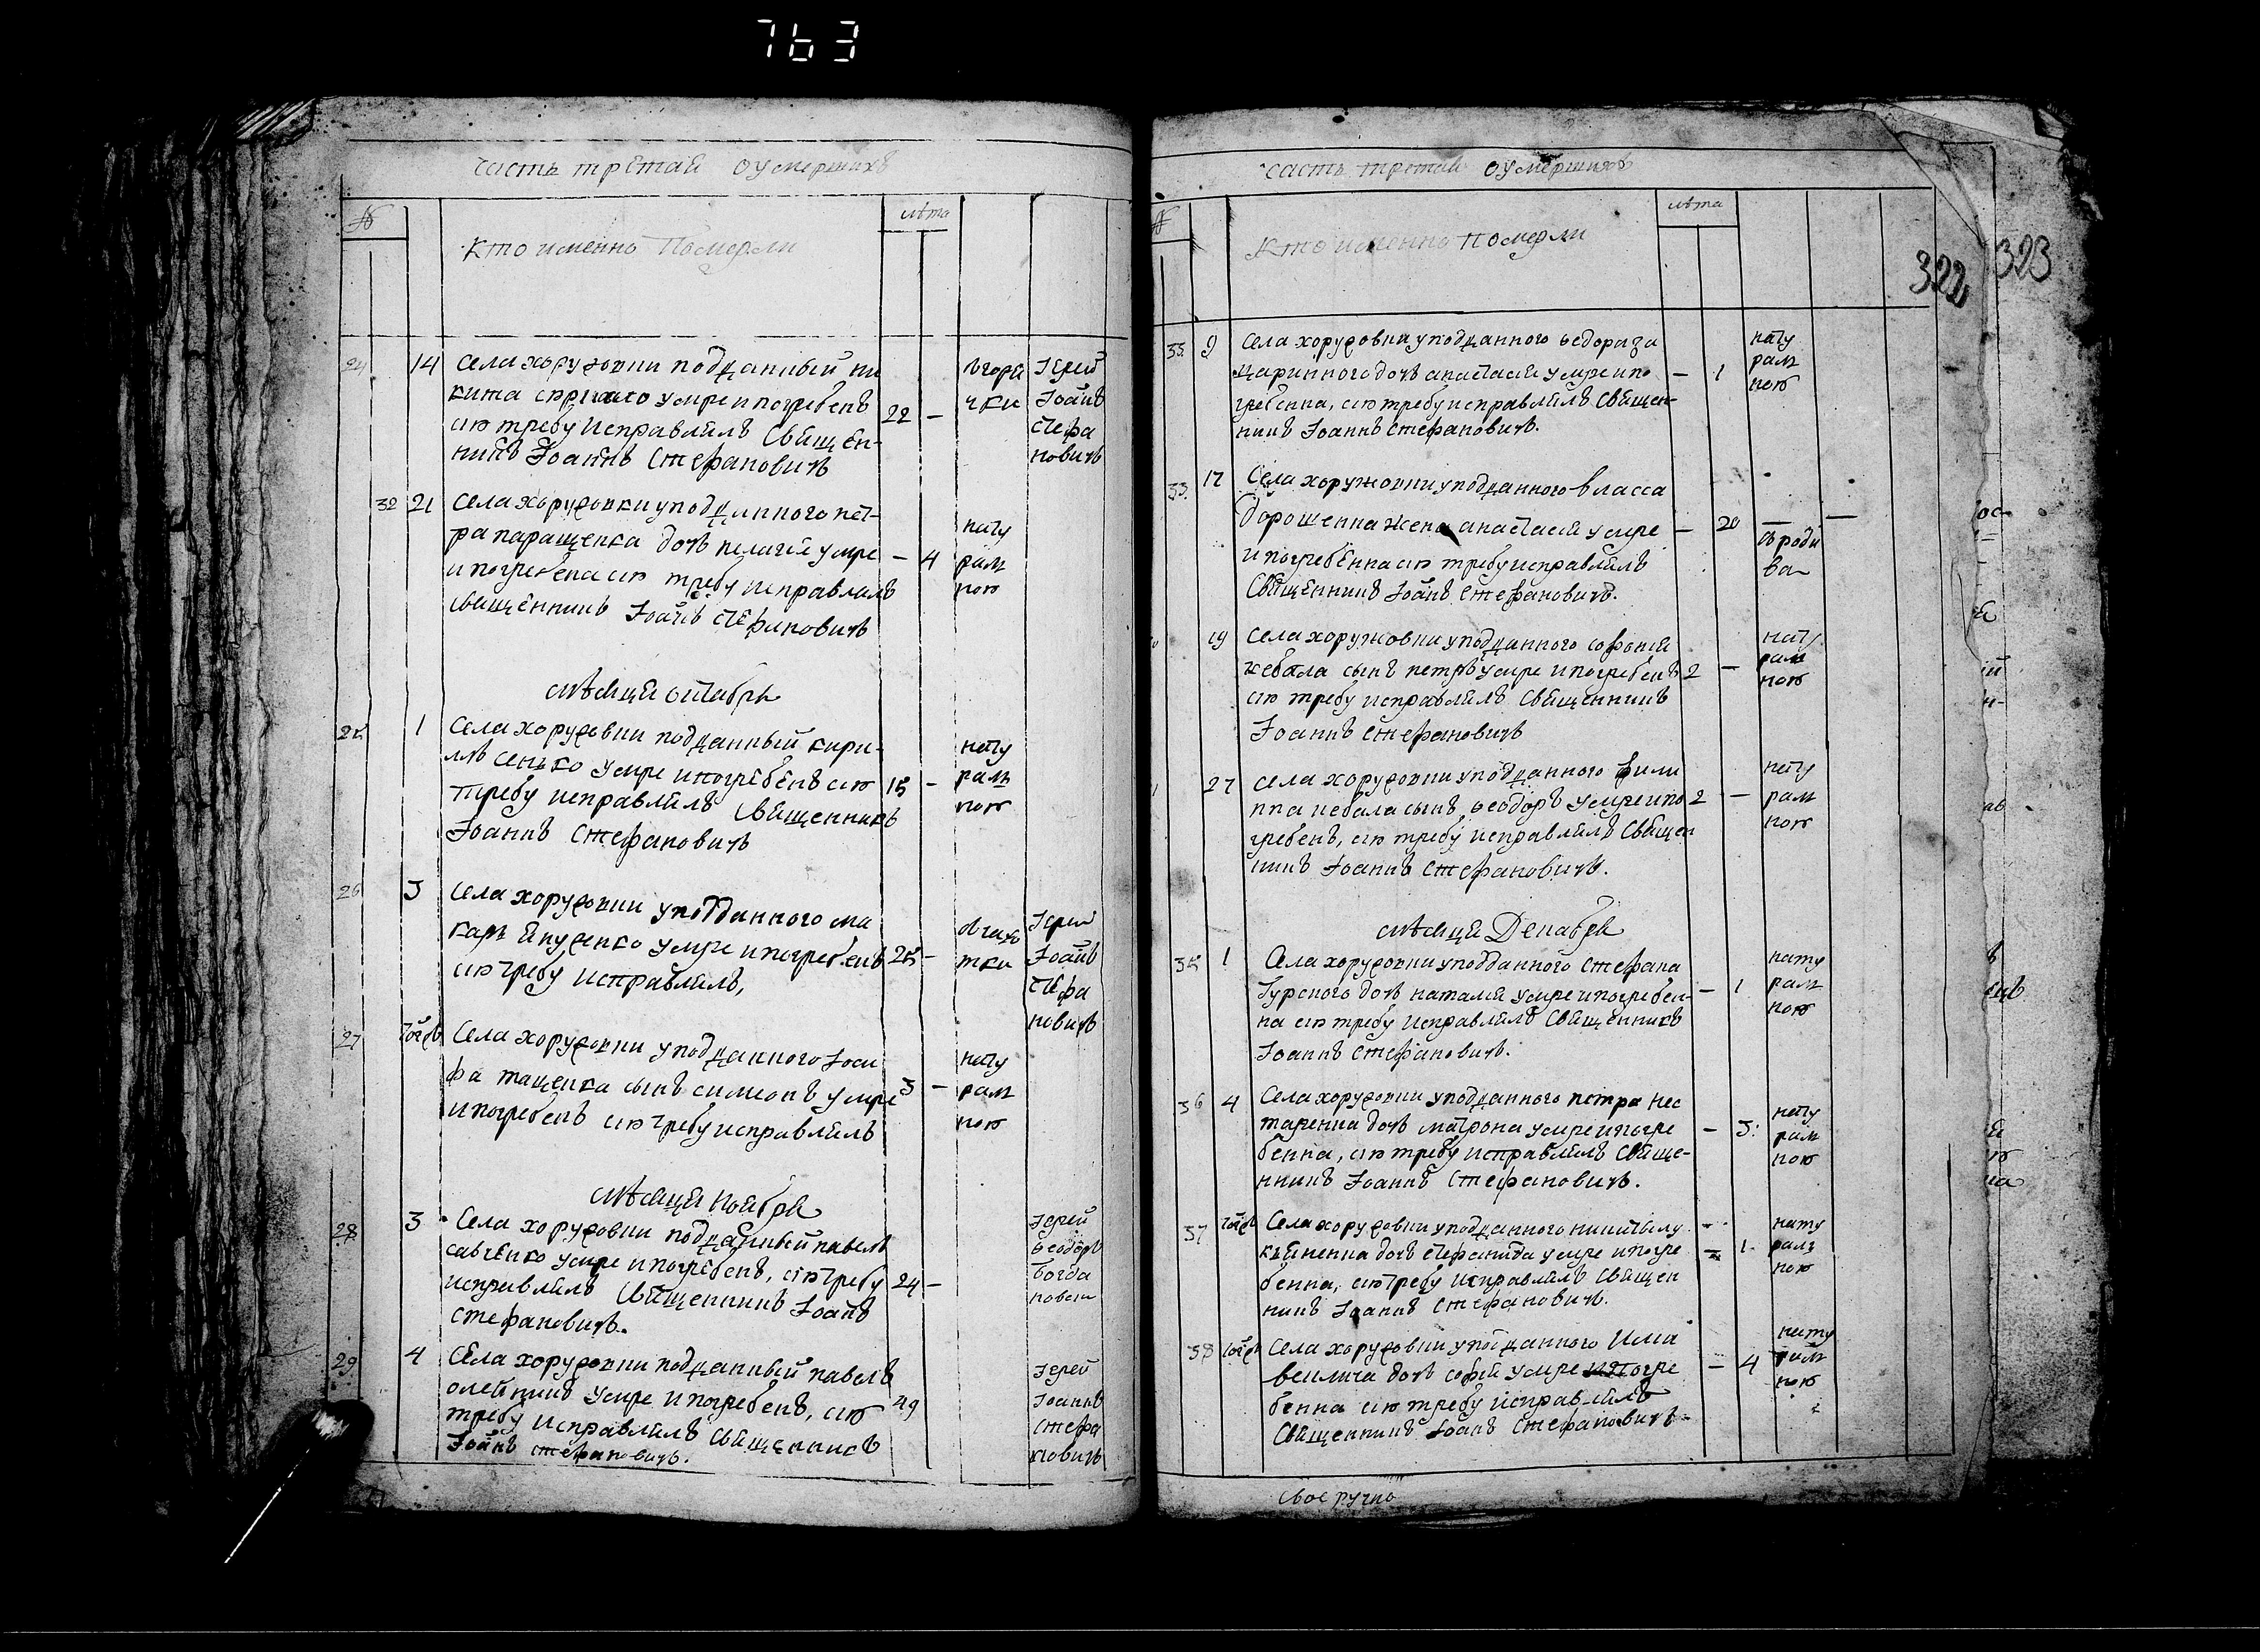 763
часть третая оумершихъ
№
лѣта
Кто именно Померли
24 14 Села хоружовки подданный ни
кита умре и погребенъ 22 —
сію требу Исправлялъ Священ-
никъ Іоаннъ Стефановичъ
ѿгоря
чки
Іерей
Іоанъ
Стефа
новичъ
32 21 Села хоружовки уподданного пет-
ра паращенка дочь пелагея умре — 4
и погребена сію требу исправлялъ
Священникъ Іоанъ Стефановичъ
нату
рал
ною
мѣсяца октабря
25 1 Села хоружовки подданный кири-
лъ сенько умре и погребенъ сію 15 —
требу исправлялъ Священникъ
Іоаннъ Стефановичъ
нату
ралъ
ною
26 3 Села хоружовки уподданного ма
каръ умре и погребенъ 25 —
сію требу исправлялъ,
ѿчахо
тки
Іерей
Іоанъ
Стефа
новичъ
27 Тогож Села хоружовки уподданного Іоси
фа тащенка сынъ симеонъ умре 3 —
и погребенъ сію требу исправлялъ
нату
рал
ною
мѣсяца Ноября
28 3 Села хоружовки подданный павелъ
савченко умре и погребенъ, сію требу 24 —
исправлялъ Священникъ Іоанъ
Стефановичъ.
Іерей
Ѳеодоръ
Богда
нович
29 4 Села хоружовки подданный павелъ
олейникъ умре и погребенъ, сію 49
требу исправлялъ Священникъ
Іоанъ Стефановичъ.
Іерей
Іоаннъ
Стефа
новичъ
часть третая оумершихъ
№
лѣта
Кто именно Померли
322 323
33 9 Села хоружовки уподданного ѳедора за
царинного дочь анастасія умре и по — 1
гребенна, сію требу исправлялъ Священ-
никъ Іоаннъ Стефановичъ.
нату
рал
ною
33 17 Села хоружовки уподданного власса
Дорошенка жена анастасія умре — 20
и погребенна сію требу исправлялъ
Священникъ Іоанъ Стефановичъ.
ѿроди
ва
19 Села хоружовки уподданного софонія
кебала сынъ петръ умре и погребенъ 2 —
сію требу исправлялъ Священникъ
Іоаннъ Стефановичъ
нату
рал
ною
27 Села хоружовки уподданного фили
ппа кебала сынъ ѳеодоръ умре и по 2 —
гребенъ, сію требу исправлялъ Священ
никъ Іоаннъ Стефановичъ.
нату
рал
ною
мѣсяца Декабря
35 1 Села хоружовки уподданного Стефана
Гурского дочь наталія умре и погребен- — 1
на сію требу исправлялъ Священникъ
Іоаннъ Стефановичъ.
нату
рал
ною
36 4 Села хоружовки уподданного петра нес
таренка дочь матрона умре и погре — 3
бенна, сію требу исправлялъ Священ-
никъ Іоаннъ Стефановичъ.
нату
рал
ною
37 Тогож Села хоружовки уподданного
дочь стефанида умре и погре — 1
бенна, сію требу исправлялъ Священ
никъ Іоаннъ Стефановичъ.
нату
рал
ною
38 тогож Села хоружовки уподданного Илии
величка дочь софія умре и погре — 4
бенна сію требу исправлялъ
Священникъ Іоанъ Стефановичъ
нату
рал
ною
своеручно